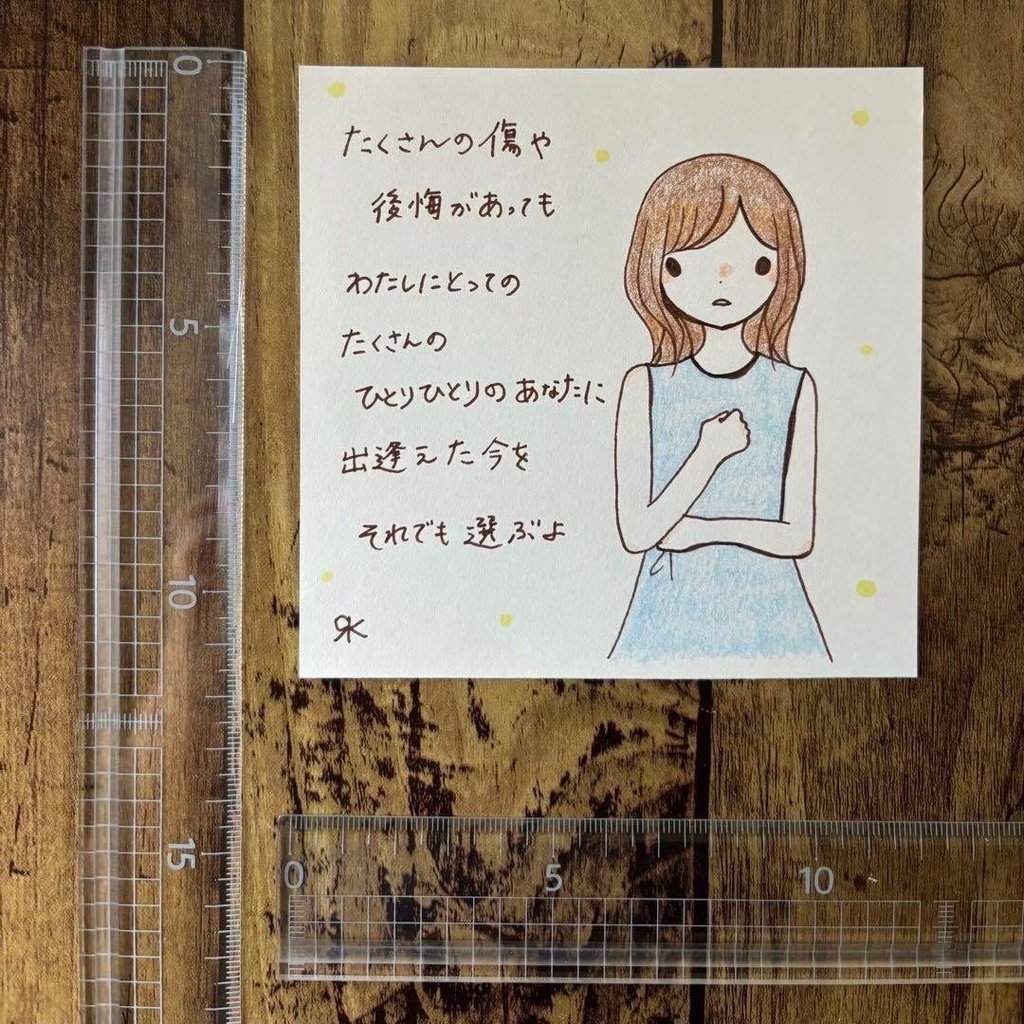 たくさんの傷や
後悔があっても
わたしにとっての
たくさんの
ひとりひとりのあなたに
出逢えた今を
それでも選ぶよ
0
5
10
15
0
5
10